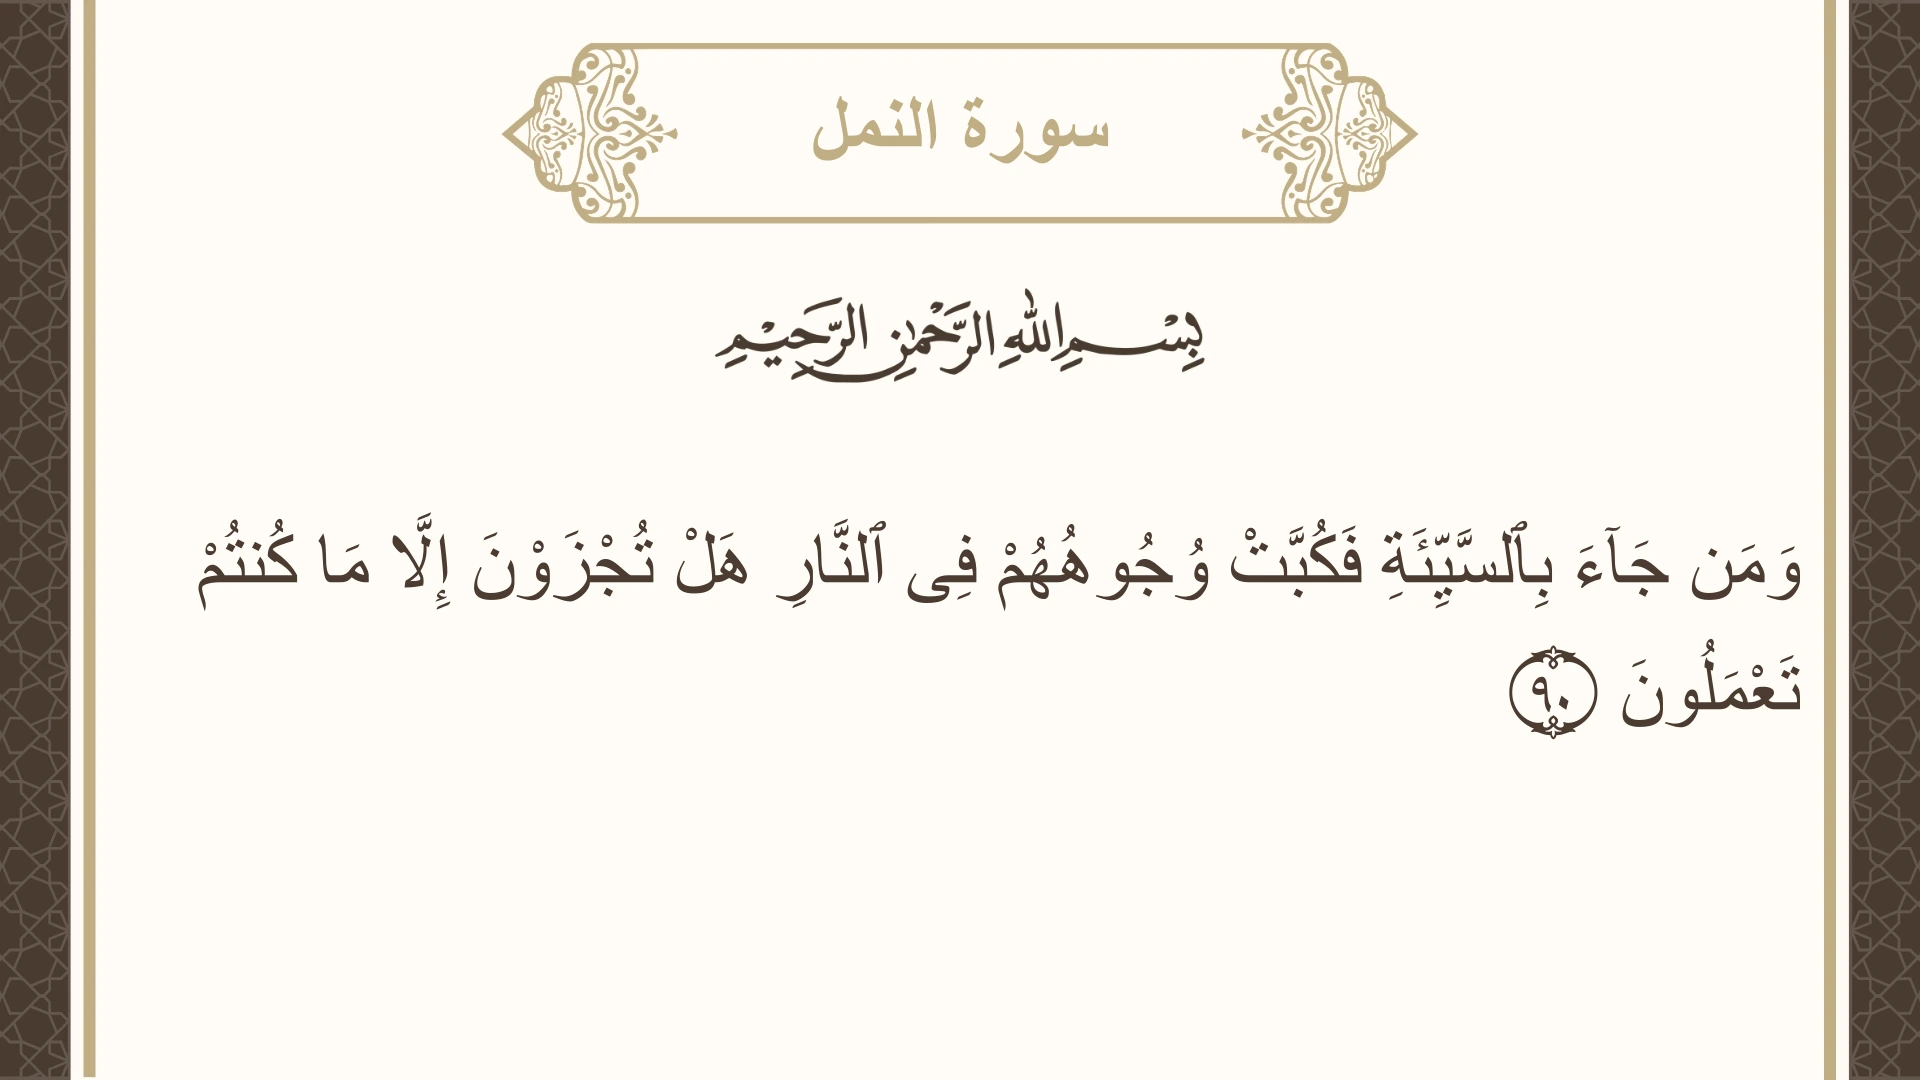 سورة النمل
بِسْمِ اللهِ الرَّحْمٰنِ الرَّحِيْمِ
وَمَن جَآءَ بِٱلسَّيِّئَةِ فَكُبَّتْ وُجُوهُهُمْ فِى ٱلنَّارِ هَلْ تُجْزَوْنَ إِلَّا مَا كُنتُمْ
تَعْمَلُونَ ٩٠